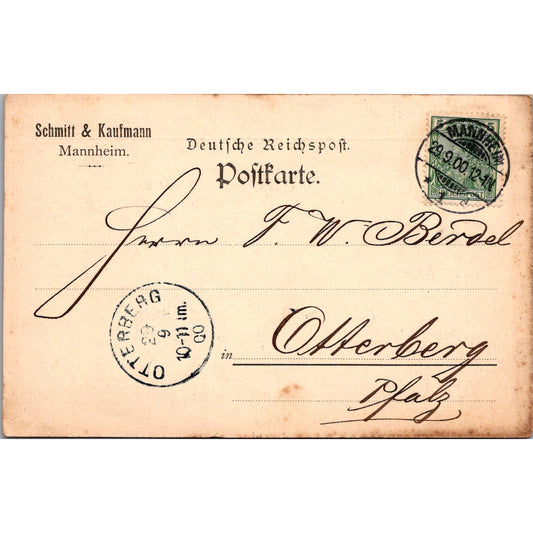 Schmitt & Kaufmann
Mannheim.
Deutsche Reichspost.
Postkarte.
MANNHEIM
29.9.00.12-1N
Herrn F. W. Berdel
OTTERBERG
29
9
10-11 m.
00
in Otterberg
Pfalz